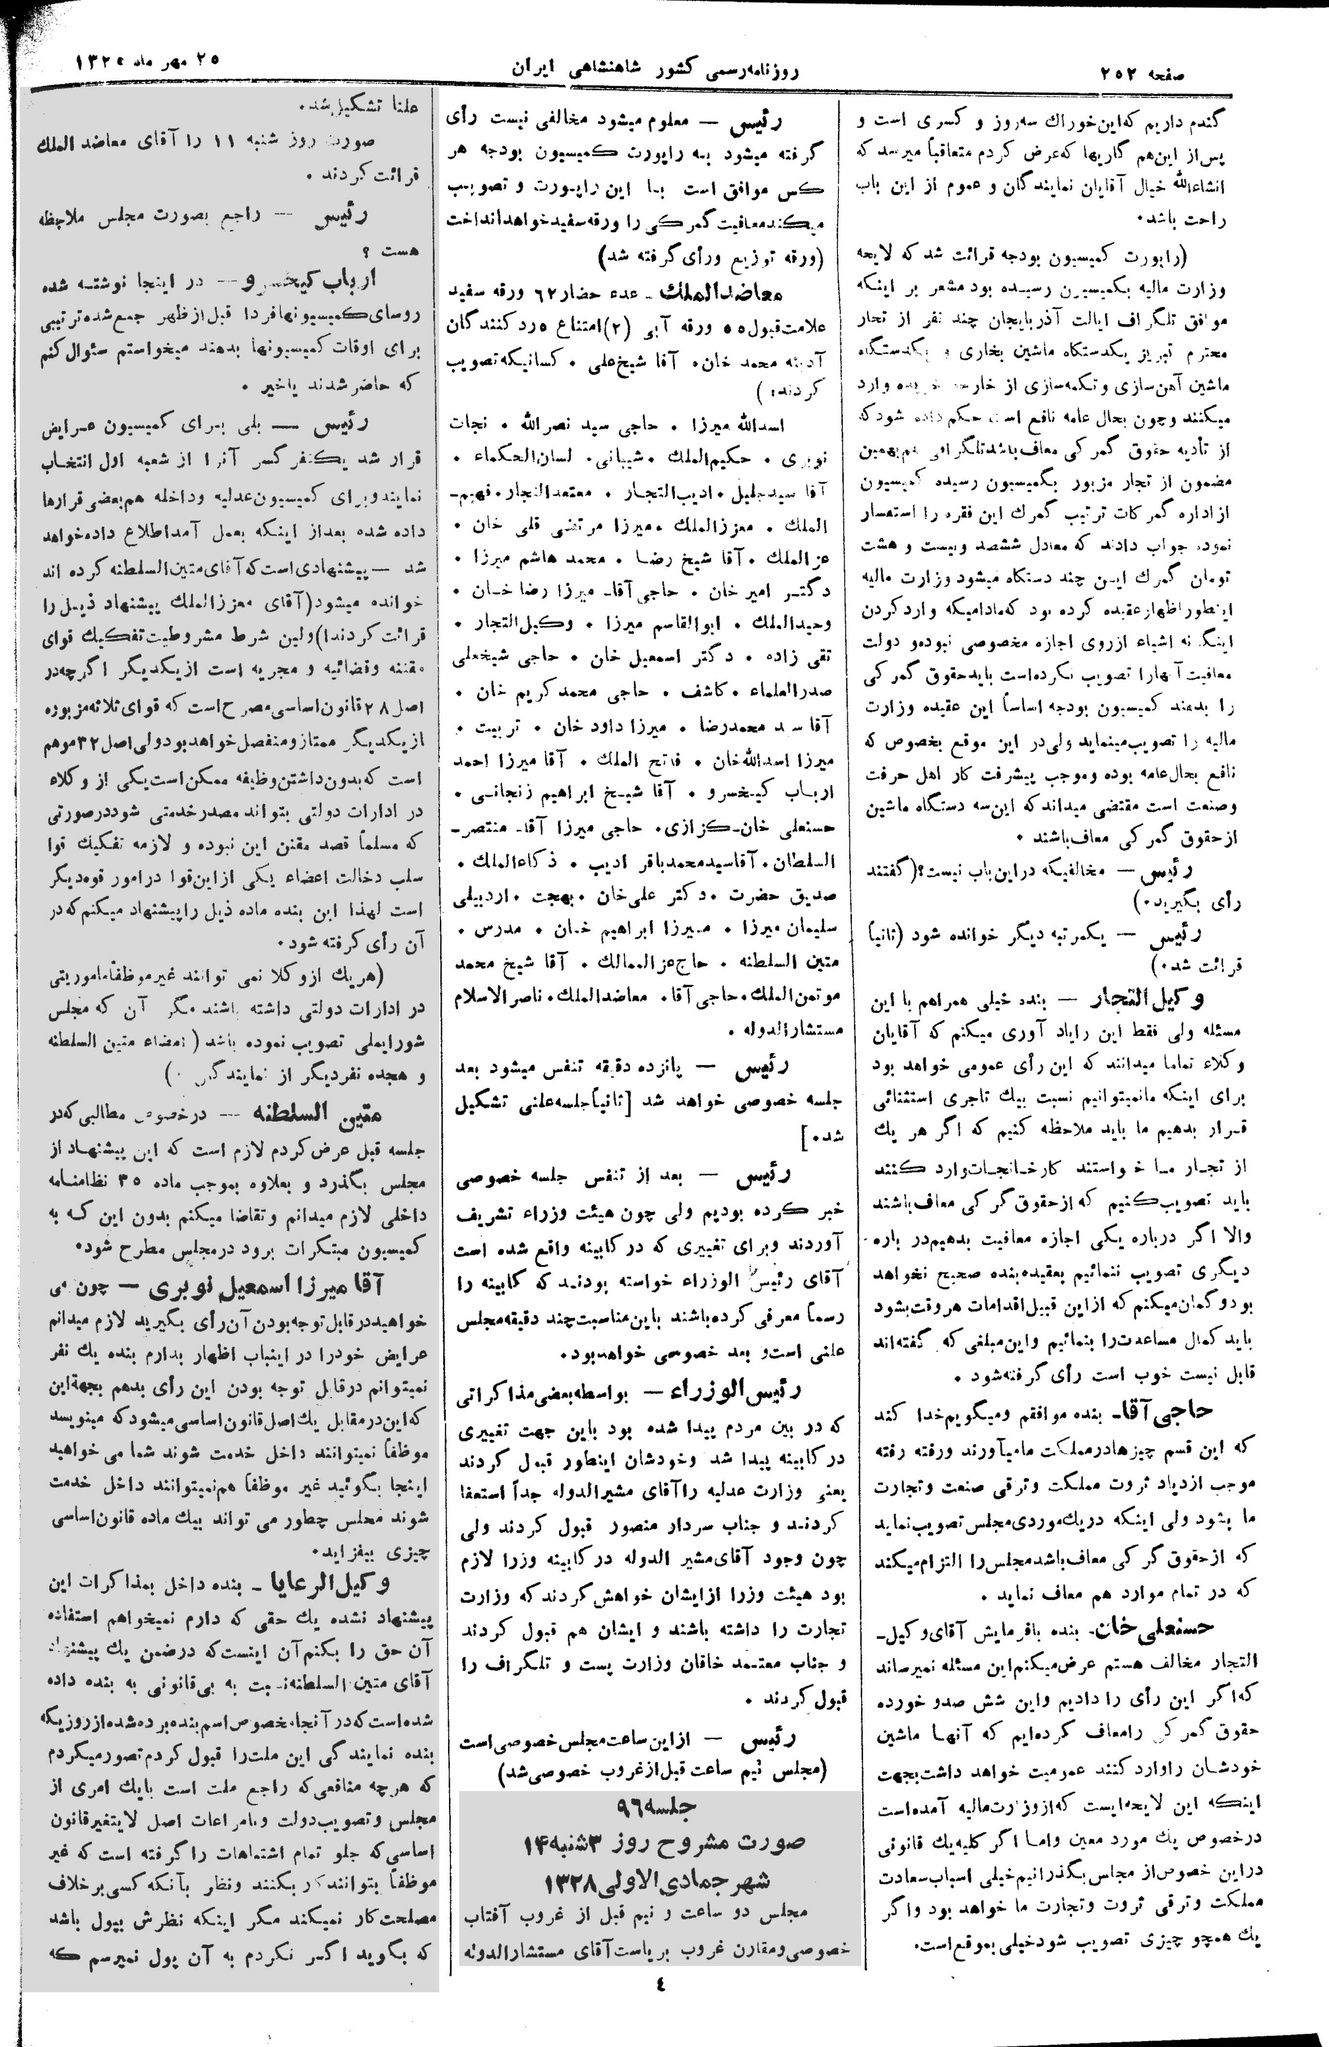 صفحه ۲۵۲
روزنامه رسمی کشور شاهنشاهی ایران
۲۵ مهر ماه
گندم داریم که این خوراک سه روز و کسری است و
پس از این هم گاریها که عرض کردم متعاقباً میرسد که
انشاءالله خیال آقایان نمایندگان و عموم از این باب
راحت باشد.
(راپورت کمیسیون بودجه قرائت شد که لایحه
وزارت مالیه بکمیسیون رسیده بود مشعر بر اینکه
موافق تلگراف ایالت آذربایجان چند نفر از تجار
محترم تبریز یکدستگاه ماشین بخاری و یکدستگاه
ماشین آهن سازی و تکمه سازی از خارجه خریده وارد
میکنند و چون بحال عامه نافع است حکم داده شود که
از تأدیه حقوق گمرکی معاف باشد تلگرافی هم بهمین
مضمون از تجار مزبور بکمیسیون رسیده کمیسیون
از اداره گمرکات ترتیب گمرک این فقره را استفسار
نموده جواب دادند که معادل ششصد و بیست و هشت
تومان گمرک این چند دستگاه میشود وزارت مالیه
اینطور اظهار عقیده کرده بود که مادامیکه وارد کردن
اینگونه اشیاء از روی اجازه مخصوصی نبوده و دولت
معافیت آنها را تصویب نکرده است باید حقوق گمرکی
را بدهند کمیسیون بودجه اساساً این عقیده وزارت
مالیه را تصویب مینماید ولی در این موقع بخصوص که
نافع بحال عامه بوده و موجب پیشرفت کار اهل حرفت
و صنعت است مقتضی میداند که این سه دستگاه ماشین
از حقوق گمرکی معاف باشند .
رئیس — مخالفی که در این باب نیست؟ (گفتند
رأی بگیرید.)
رئیس — یکمرتبه دیگر خوانده شود (ثانیاً
قرائت شد.)
وکیل التجار — بنده خیلی همراهم با این
مسئله ولی فقط این را یاد آوری میکنم که آقایان
وکلاء تماما میدانند که این رأی عمومی خواهد بود
برای اینکه ما نمیتوانیم نسبت بیک تاجری استثنائی
قرار بدهیم ما باید ملاحظه کنیم که اگر هر یک
از تجار ما خواستند کارخانجات وارد کنند
باید تصویب کنیم که از حقوق گمرکی معاف باشند
والا اگر درباره یکی اجازه معافیت بدهیم در باره
دیگری تصویب ننمائیم بعقیده بنده صحیح نخواهد
بود و گمان میکنم که از این قبیل اقدامات هر وقت بشود
باید کمال مساعدت را بنمائیم و این مبلغی که گفته اند
قابل نیست خوب است رأی گرفته شود .
حاجی آقا ـ بنده موافقم و میگویم خدا کند
که این قسم چیزها در مملکت ما میآورند و رفته رفته
موجب ازدیاد ثروت مملکت و ترقی صنعت و تجارت
ما بشود ولی اینکه در یک موردی مجلس تصویب نماید
که از حقوق گمرکی معاف باشد مجلس را التزام میکند
که در تمام موارد هم معاف نماید .
حسنعلی خان ـ بنده با فرمایش آقای وکیل ـ
التجار مخالف هستم عرض میکنم این مسئله نمیرساند
که اگر این رأی را دادیم و این شش صد و خورده
حقوق گمرکی را معاف کرده ایم که آنها ماشین
خودشان را وارد کنند عمومیت خواهد داشت بجهت
اینکه این لایحه ایست که از وزارت مالیه آمده است
در خصوص یک مورد معین و اما اگر کلیه یک قانونی
در این خصوص از مجلس بگذرانیم خیلی اسباب سعادت
مملکت و ترقی ثروت و تجارت ما خواهد بود و اگر
یک همچو چیزی تصویب شود خیلی بموقع است.
رئیس — معلوم میشود مخالفی نیست رأی
گرفته میشود به راپورت کمیسیون بودجه هر
کس موافق است با این راپورت و تصویب
میکند معافیت گمرکی را ورقه سفید خواهد انداخت
(ورقه توزیع و رأی گرفته شد)
معاضد الملک ـ عده حضار ۶۲ ورقه سفید
علامت قبول ۵۵ ورقه آبی (۲) امتناع ۵ رد کنندگان
آدینه محمد خان. آقا شیخ علی . کسانیکه تصویب
کردند: )
اسدالله میرزا . حاجی سید نصرالله . نجات
نوبری . حکیم الملک . شیبانی . لسان الحکماء .
آقا سید جلیل . ادیب التجار . معتمد التجار . فهیم ـ
الملک . معزز الملک . میرزا مرتضی قلی خان .
عز الملک . آقا شیخ رضا . محمد هاشم میرزا .
دکتر امیر خان . حاجی آقا ـ میرزا رضا خان .
وحید الملک . ابوالقاسم میرزا . وکیل التجار .
تقی زاده . دکتر اسمعیل خان . حاجی شیخعلی
صدر العلماء . کاشف . حاجی محمد کریم خان .
آقا سید محمد رضا . میرزا داود خان . تربیت .
میرزا اسدالله خان . فاتح الملک . آقا میرزا احمد
ارباب کیخسرو . آقا شیخ ابراهیم زنجانی .
حسنعلی خان ـ کزازی. حاجی میرزا آقا ـ منتصر ـ
السلطان . آقا سید محمد باقر ادیب . ذکاء الملک .
صدیق حضرت . دکتر علی خان . بهجت . اردبیلی
سلیمان میرزا . میرزا ابراهیم خان . مدرس .
متین السلطنه . حاج عز الممالک . آقا شیخ محمد
موتمن الملک . حاجی آقا . معاضد الملک . ناصر الاسلام
مستشار الدوله .
رئیس — پانزده دقیقه تنفس میشود بعد
جلسه خصوصی خواهد شد [ثانیاً جلسه علنی تشکیل
شد.]
رئیس — بعد از تنفس جلسه خصوصی
خبر کرده بودیم ولی چون هیئت وزراء تشریف
آوردند و برای تغییری که در کابینه واقع شده است
آقای رئیس الوزراء خواسته بودند که کابینه را
رسماً معرفی کرده باشند باین مناسبت چند دقیقه مجلس
علنی است و بعد خصوصی خواهد بود.
رئیس الوزراء — بواسطه بعضی مذاکراتی
که در بین مردم پیدا شده بود باین جهت تغییری
در کابینه پیدا شد و خودشان اینطور قبول کردند
یعنی وزارت عدلیه را آقای مشیر الدوله جداً استعفا
کردند و جناب سردار منصور قبول کردند ولی
چون وجود آقای مشیر الدوله در کابینه وزرا لازم
بود هیئت وزرا از ایشان خواهش کردند که وزارت
تجارت را داشته باشند و ایشان هم قبول کردند
و جناب معتمد خاقان وزارت پست و تلگراف را
قبول کردند .
رئیس — از این ساعت مجلس خصوصی است
(مجلس نیم ساعت قبل از غروب خصوصی شد)
جلسه ۹۶
صورت مشروح روز ۳شنبه ۱۴
شهر جمادی الاولی ۱۳۲۸
مجلس دو ساعت و نیم قبل از غروب آفتاب
خصوصی و مقارن غروب بریاست آقای مستشار الدوله
علنا تشکیل شد.
صورت روز شنبه ۱۱ را آقای معاضد الملک
قرائت کردند .
رئیس — راجع بصورت مجلس ملاحظه
هست ؟
ارباب کیخسرو — در اینجا نوشته شده
روسای کمیسیونها فردا قبل از ظهر جمع شده ترتیبی
برای اوقات کمیسیونها بدهند میخواستم سئوال کنم
که حاضر شدند یا خیر .
رئیس — بلی برای کمیسیون عرایض
قرار شد یکنفر کسر آنرا از شعبه اول انتخاب
نمایند و برای کمیسیون عدلیه و داخله هم بعضی قرارها
داده شده بعد از اینکه بعمل آمد اطلاع داده خواهد
شد — پیشنهادی است که آقای متین السلطنه کرده اند
خوانده میشود (آقای معزز الملک پیشنهاد ذیل را
قرائت کردند) اولین شرط مشروطیت تفکیک قوای
مقننه و قضائیه و مجریه است از یکدیگر اگر چه در
اصل ۲۸ قانون اساسی مصرح است که قوای ثلاثه مزبوره
از یکدیگر ممتاز و منفصل خواهد بود ولی اصل ۳۲ موهم
است که بدون داشتن وظیفه ممکن است یکی از وکلاء
در ادارات دولتی بتواند مصدر خدمتی شود در صورتی
که مسلماً قصد مقنن این نبوده و لازمه تفکیک قوا
سلب دخالت اعضاء یکی از این قوا در امور قوه دیگر
است لهذا این بنده ماده ذیل را پیشنهاد میکنم که در
آن رأی گرفته شود.
(هر یک از وکلا نمی توانند غیر موظفاً ماموریتی
در ادارات دولتی داشته باشند مگر آن که مجلس
شورایملی تصویب نموده باشد (امضاء متین السلطنه
و هجده نفر دیگر از نمایندگان .)
متین السلطنه — در خصوص مطالبی که در
جلسه قبل عرض کردم لازم است که این پیشنهاد از
مجلس بگذرد و بعلاوه بموجب ماده ۳۵ نظامنامه
داخلی لازم میدانم و تقاضا میکنم بدون این که به
کمیسیون مبتکرات برود در مجلس مطرح شود.
آقا میرزا اسمعیل نوبری — چون می
خواهید در قابل توجه بودن آن رأی بگیرید لازم میدانم
عرایض خود را در اینباب اظهار بدارم بنده یک نفر
نمیتوانم در قابل توجه بودن این رأی بدهم بجهة این
که این در مقابل یک اصل قانون اساسی میشود که مینویسد
موظفاً نمیتوانند داخل خدمت شوند شما می خواهید
اینجا بگوئید غیر موظفاً هم نمیتوانند داخل خدمت
شوند مجلس چطور می تواند بیک ماده قانون اساسی
چیزی بیفزاید.
وکیل الرعایا ـ بنده داخل بمذاکرات این
پیشنهاد نشده یک حقی که دارم نمیخواهم استفاده
آن حق را بکنم آن اینست که در ضمن یک پیشنهاد
آقای متین السلطنه نسبت به بی قانونی به بنده داده
شده است که در آنجا بخصوص اسم بنده برده شده از روزیکه
بنده نمایندگی این ملت را قبول کردم تصور میکردم
که هر چه منافعی که راجع ملت است بایک امری از
مجلس و تصویب دولت و بامراعات اصل لایتغیر قانون
اساسی که جلو تمام اشتباهات را گرفته است که غیر
موظفاً بتوانند کار بکنند و نظر بآنکه کسی بر خلاف
مصلحت کار نمیکند مگر اینکه نظرش بپول باشد
که بگوید اگر نکردم به آن پول نمیرسم که
٤